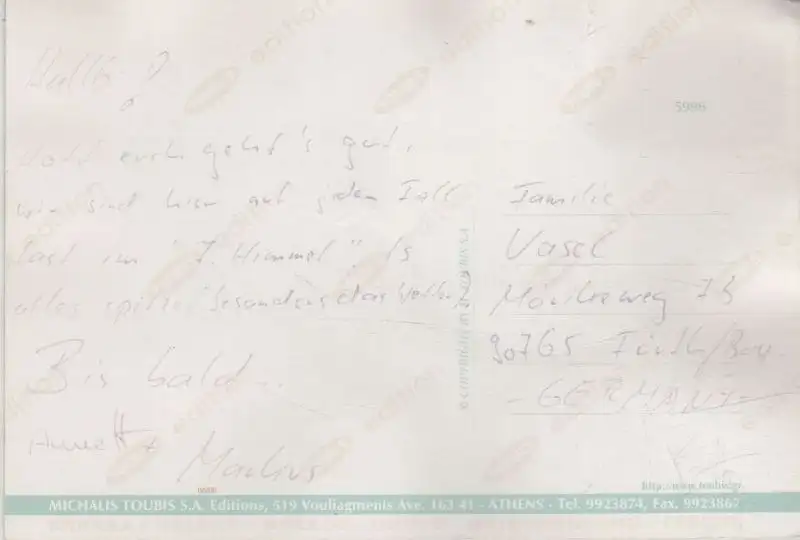 Hallo!
euch geht's gut.
wir sind hier auf jeden Fall
fast im "7. Himmel". Is
alles spitze besonders das Wetter
Bis bald...
Annett +
Markus
5986
Familie
Vasel
Mörikeweg 7b
90765 Fürth/Bay.
- GERMANY -
© COPYRIGHT BY M. TOUBIS S.A.
http://www.toubis.gr
MICHALIS TOUBIS S.A. Editions, 519 Vouliagmenis Ave. 163 41 - ATHENS - Tel. 9923874, Fax. 9923867